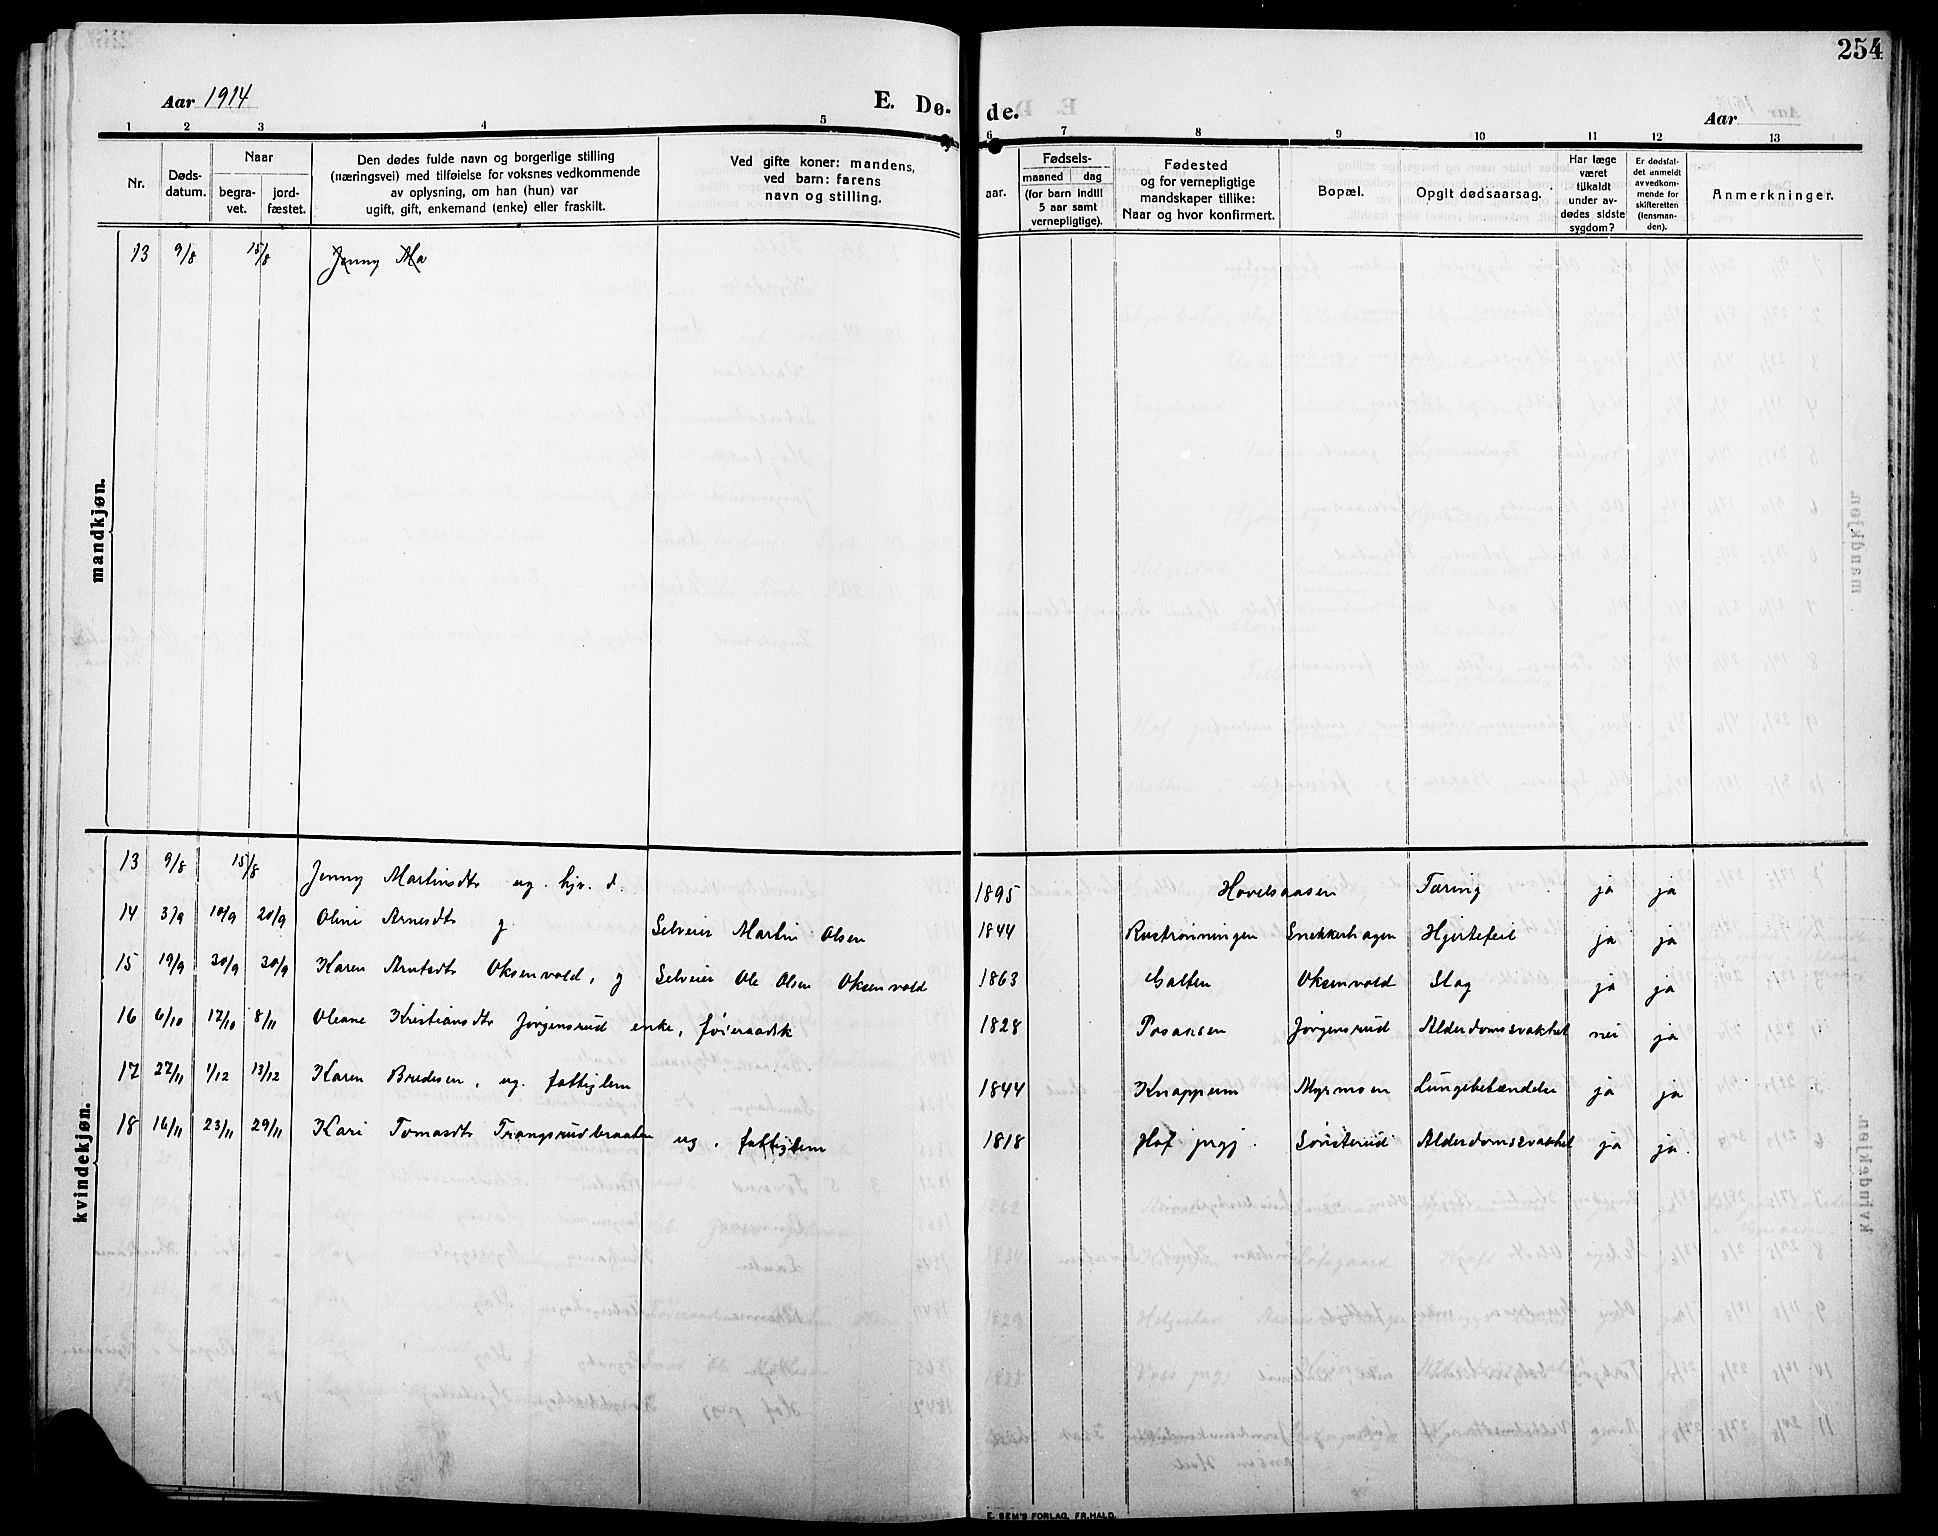 254
Aar 1914
E. Dø-
de.
Aar
1 2 3 4 5 6 7 8 9 10 11 12 13
Nr.
Døds-
datum.
Naar
begra-
vet.
jord-
fæstet.
Den dødes fulde navn og borgerlige stilling
(næringsvei) med tilføielse for voksnes vedkommende
av oplysning, om han (hun) var
ugift, gift, enkemand (enke) eller fraskilt.
Ved gifte koner: mandens,
ved barn: farens
navn og stilling.
aar.
Fødsels-
maaned dag
(for barn indtil
5 aar samt
vernepligtige).
Fødested
og for vernepligtige
mandskaper tillike:
Naar og hvor konfirmert.
Bopæl.
Opgit dødsaarsag.
Har læge
været
tilkaldt
under av-
dødes sidste
sygdom?
Er dødsfal-
det anmeldt
av vedkom-
mende for
skifteretten
(lensman-
den).
Anmerkninger.
mandkjøn.
13 9/8 15/8 Jenny Ma
kvindekjøn.
13 9/8 15/8 Jenny Martinsdtr ug. hjv. d. 1895 Hovelsaasen Tæring ja ja
14 3/9 10/9 20/9 Oline Arnesdtr g. Selveier Martin Olsen 1844 Rustrønningen Snekkerhagen Hjertefeil ja ja
15 19/9 30/9 30/9 Karen Arntsdtr Oksenvold, g Selveier Ole Olsen Oksenvold 1863 Galten Oksenvold Slag ja ja
16 6/10 17/10 8/11 Oleane Kristiansdtr Jørgensrud enke, føderaadsk 1828 Posaasen Jørgensrud Alderdomssvakhet nei ja
17 27/11 1/12 13/12 Karen Bredesen, ug. fattiglem 1844 Knapperm Myrmoen Lungebetændelse ja ja
18 16/11 23/11 29/11 Kari Tomasdtr Trangsrudbraaten ug. fattiglem 1818 Hof prgj. Sønsterud Alderdomssvakhet ja ja.
E. SEM'S FORLAG, FR.HALD.